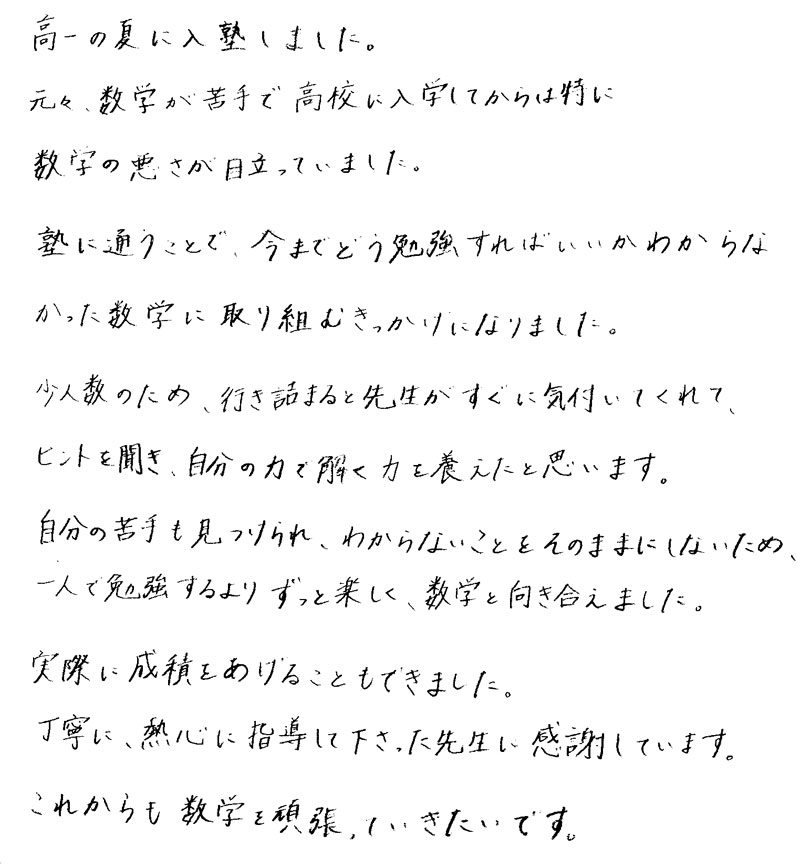 高一の夏に入塾しました。
元々、数学が苦手で高校に入学してからは特に
数学の悪さが目立っていました。
塾に通うことで、今までどう勉強すればいいかわからな
かった数学に取り組むきっかけになりました。
少人数のため、行き詰まると先生がすぐに気付いてくれて、
ヒントを聞き、自分の力で解く力を養えたと思います。
自分の苦手も見つけられ、わからないことをそのままにしないため、
一人で勉強するよりずっと楽しく、数学と向き合えました。
実際に成積をあげることもできました。
丁寧に、熱心に指導して下さった先生に感謝しています。
これからも数学を頑張っていきたいです。